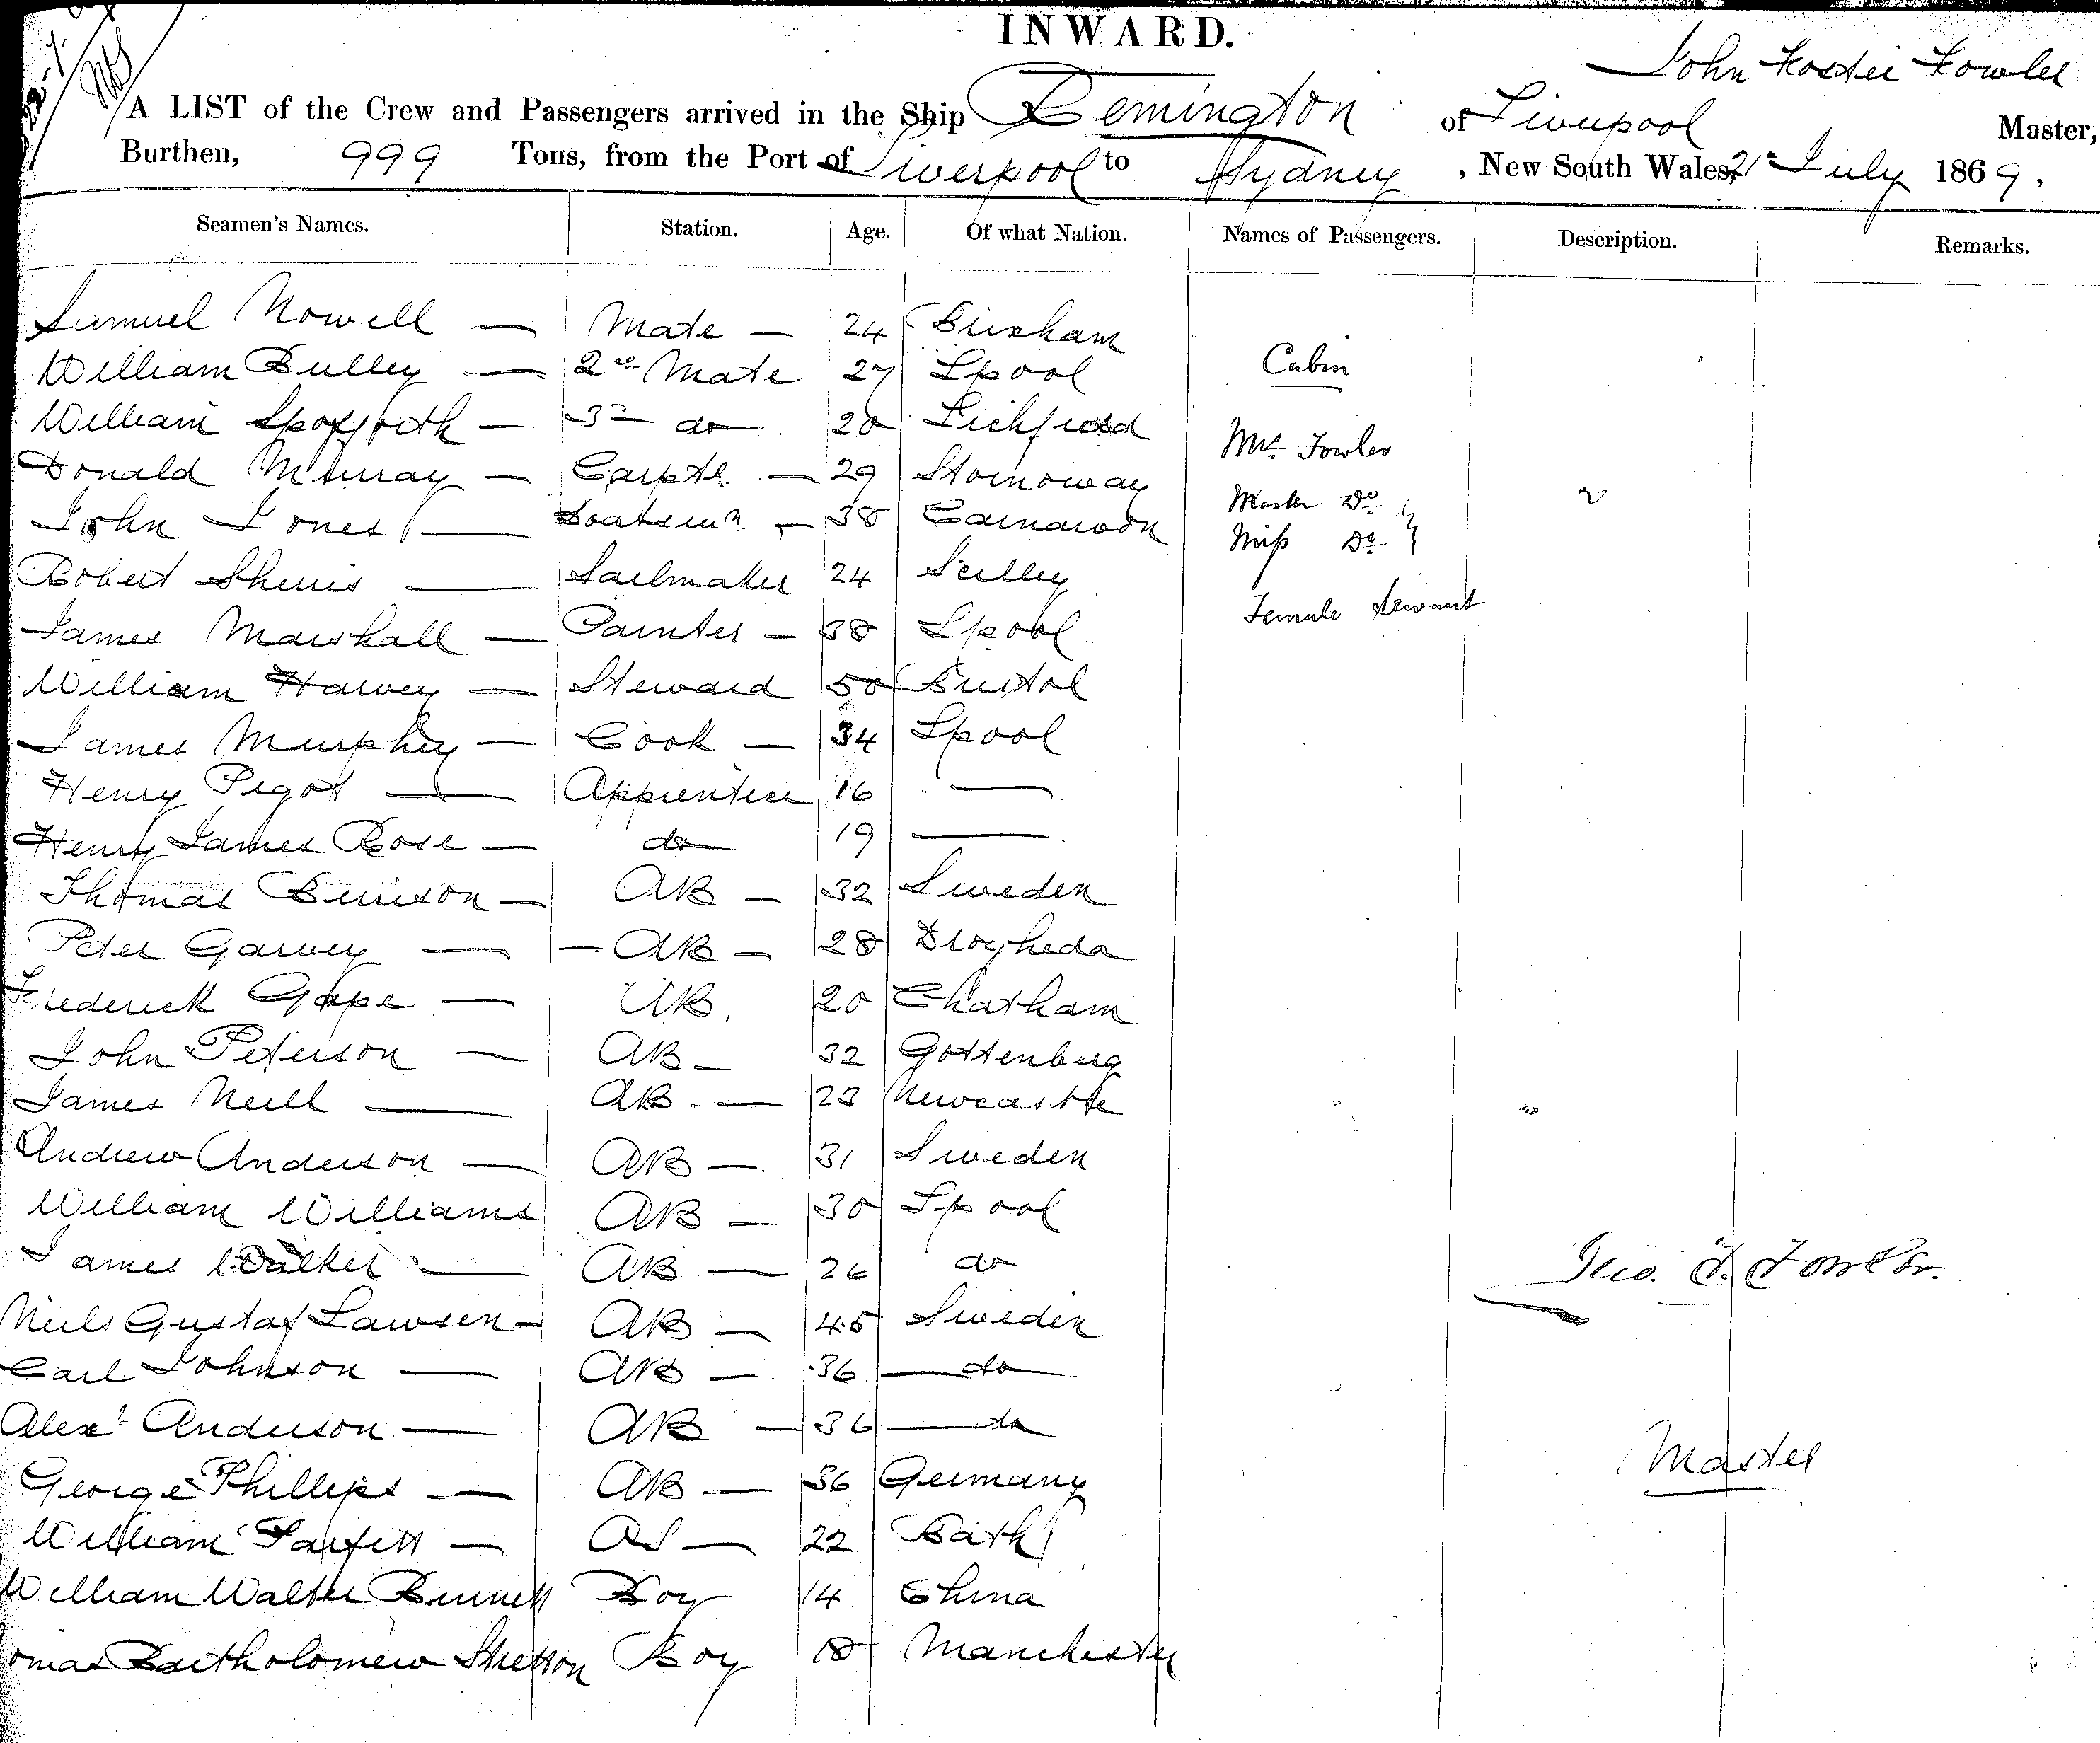 INWARD.
John Foster Fowler
A LIST of the Crew and Passengers arrived in the Ship Lemington of Liverpool Master,
Burthen, 999 Tons, from the Port of Liverpool to Sydney, New South Wales, 21st July 1869,
Seamen's Names. Station. Age. Of what Nation. Names of Passengers. Description. Remarks.
Samuel Nowell — Mate — 24 Brixham
William Bulley — 2nd Mate 27 Lpool Cabin
William Spofforth — 3rd do 20 Lichfield Mrs Fowler
Donald Murray — Carptr — 29 Stornoway Master Do
John Jones — Boatswn — 38 Carnarvon Miss Do
Robert Sherris — Sailmaker 24 Scilly Female Servant
James Marshall — Painter — 38 Lpool
William Harvey — Steward 50 Bristol
James Murphy — Cook — 34 Lpool
Henry Pigot — Apprentice 16 —
Henry James Rose — do 19 —
Thomas Benison — AB — 32 Sweden
Peter Garvey — AB — 28 Drogheda
Frederick Gape — AB. 20 Chatham
John Peterson — AB — 32 Gottenburg
James Neill — AB — 23 Newcastle
Andrew Anderson — AB — 31 Sweden
William Williams AB — 30 Lpool
James Walker — AB — 26 do
Jno. F. Fowler.
Neils Gustaf Lawsen — AB — 45 Sweden
Carl Johnson — AB — 36 — do
Alexr Anderson — AB — 36 — do
Master
George Phillips — AB — 36 Germany
William Parfitt — OS — 22 Bath
William Walter Burnett Boy 14 China
omas Bartholomew Stretton Boy 18 Manchester